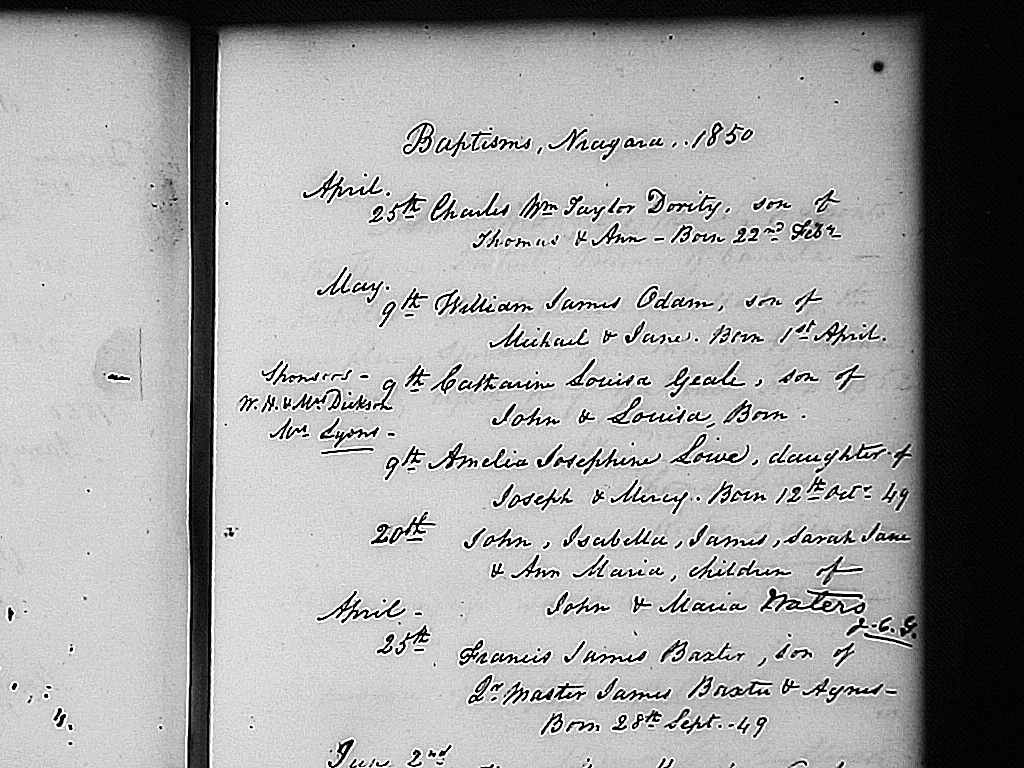 Baptisms, Niagara, 1850
April.
25th Charles Wm Taylor Dority, son of
Thomas & Ann - Born 22nd Febr
May.
9th William James Odam, son of
Michael & Jane. Born 1st April.
Sponsors -
W. H. & Mrs Dickson
Mrs Lyons -
9th Catharine Louisa Geale, son of
John & Louisa, Born.
9th Amelia Josephine Lowe, daughter of
Joseph & Mercy. Born 12th Octr 49
20th John, Isabella, James, Sarah Jane
& Ann Maria, children of
John & Maria Waters
April -
25th Francis James Baxter, son of
Qr Master James Baxter & Agnes -
Born 28th Sept. - 49
June 2nd